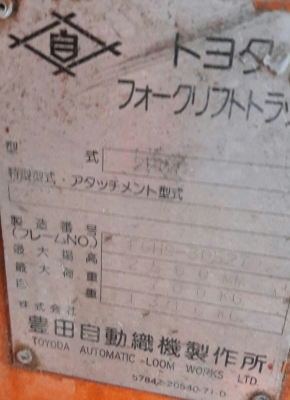 自
トヨタ
フォークリフトトラ
型 式
特殊型式・アタッチメント型式
製造番号
(フレームNO.)
最大揚高 MM
最大荷重 KG
自重 KG
株式会社
豊田自動織機製作所
TOYODA AUTOMATIC LOOM WORKS LTD
57842-20540-71-D